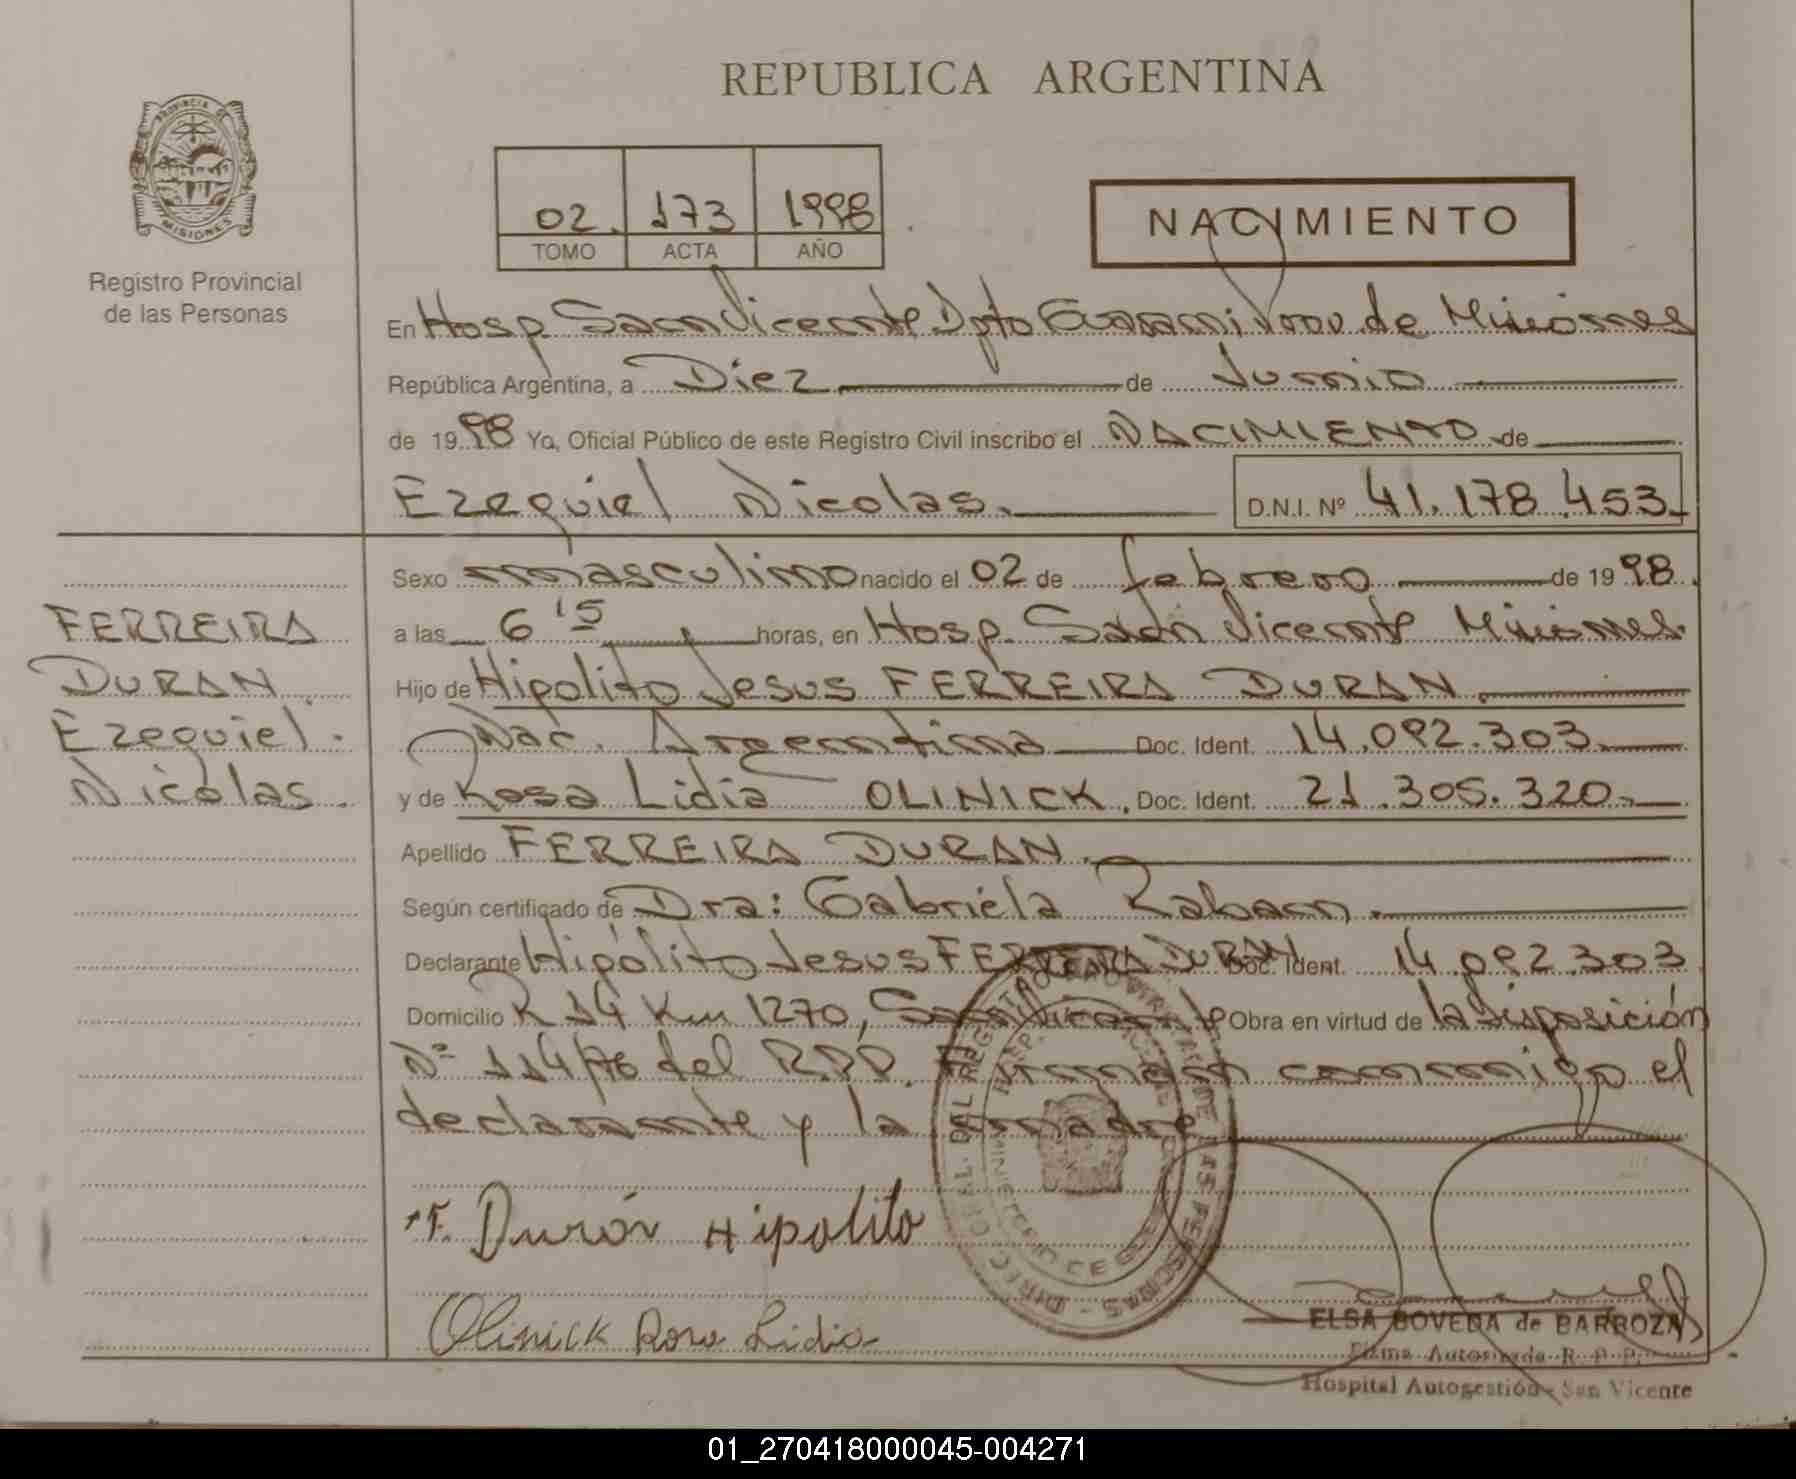 REPUBLICA ARGENTINA
PROVINCIA DE
MISIONES
Registro Provincial
de las Personas
02 173 1998
TOMO ACTA AÑO
NACIMIENTO
En Hosp San Vicente Dpto Guarani Prov. de Misiones
República Argentina, a Diez de Junio
de 1998 Yo, Oficial Público de este Registro Civil inscribo el NACIMIENTO de
Ezequiel Nicolas. D.N.I. Nº 41.178.453
Sexo masculino nacido el 02 de febrero de 1998.
a las 6 15 horas, en Hosp. San Vicente Misiones.
Hijo de Hipolito Jesus FERREIRA DURAN.
Nac. Argentina Doc. Ident. 14.092.303
y de Rosa Lidia OLINICK. Doc. Ident. 21.305.320
Apellido FERREIRA DURAN.
Según certificado de Dra: Gabriela Raban.
Declarante Hipólito Jesus FERREIRA DURAN Doc. Ident. 14.092.303
Domicilio R 14 Km 1270, San Vicente Obra en virtud de la disposición
Nº 114/76 del R.P.P. Firman conmigo el
declarante y la madre
FERREIRA
DURAN
Ezequiel.
Nicolas.
F. Durán Hipolito
Olinick Rosa Lidia
DIREC. GRAL. DEL REGISTRO PROVINCIAL DE LAS PERSONAS
ELSA BOVEDA de BARBOZA
Firma Autorizada R. P. P.
Hospital Autogestión - San Vicente
01_270418000045-004271